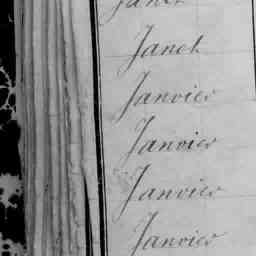 Janet
Janet
Janvier
Janvier
Janvier
Janvier